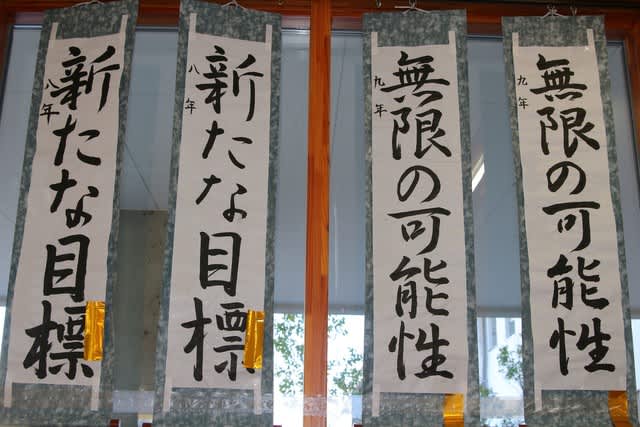 無限の可能性
九年
無限の可能性
九年
新たな目標
八年
新たな目標
八年